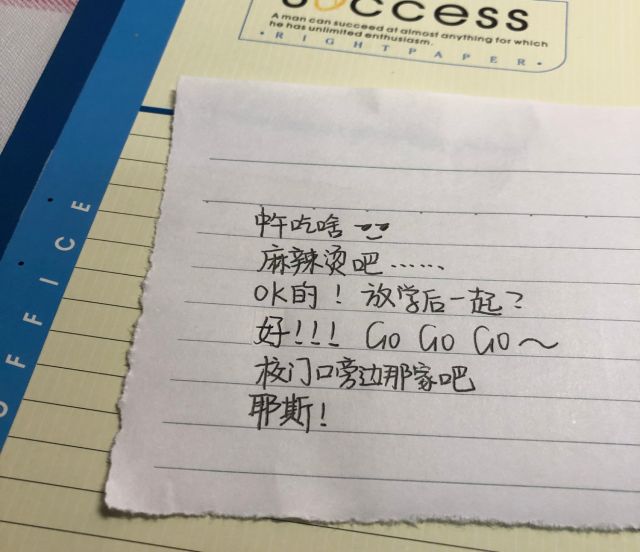 Success
A man can succeed at almost anything for which
he has unlimited enthusiasm.
• RIGHTPAPER •
OFFICE
中午吃啥
麻辣烫吧……
OK的！放学后一起？
好!!! GO GO GO～
校门口旁边那家吧
耶斯！